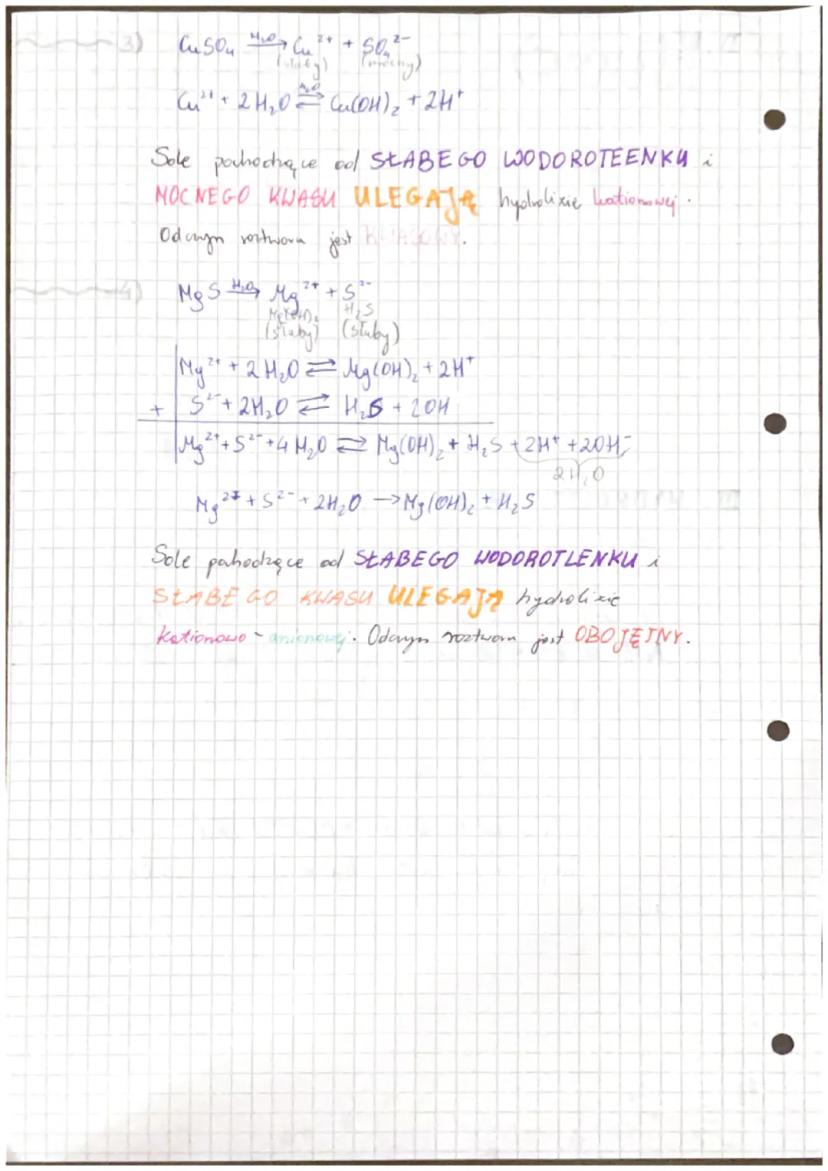 3) CuSO₄ —H₂O→ Cu²⁺ + SO₄²⁻
(słaby) (mocny)
Cu²⁺ + 2H₂O ⇄ Cu(OH)₂ + 2H⁺
Sole pochodzące od SŁABEGO WODOROTEENKU i
MOCNEGO KWASU ULEGAJĄ hydrolizie kationowej.
Odczyn roztworu jest KWASOWY.
4) MgS —H₂O→ Mg²⁺ + S²⁻
Mg(OH)₂ H₂S
(słaby) (słaby)
Mg²⁺ + 2H₂O ⇄ Mg(OH)₂ + 2H⁺
+ S²⁻ + 2H₂O ⇄ H₂S + 2OH
Mg²⁺ + S²⁻ + 4H₂O ⇄ Mg(OH)₂ + H₂S + 2H⁺ + 2OH⁻
2H₂O
Mg²⁺ + S²⁻ + 2H₂O → Mg(OH)₂ + H₂S
Sole pochodzące od SŁABEGO WODOROTLENKU i
SŁABEGO KWASU ULEGAJĄ hydrolizie
kationowo - anionowej. Odczyn roztworu jest OBOJĘTNY.